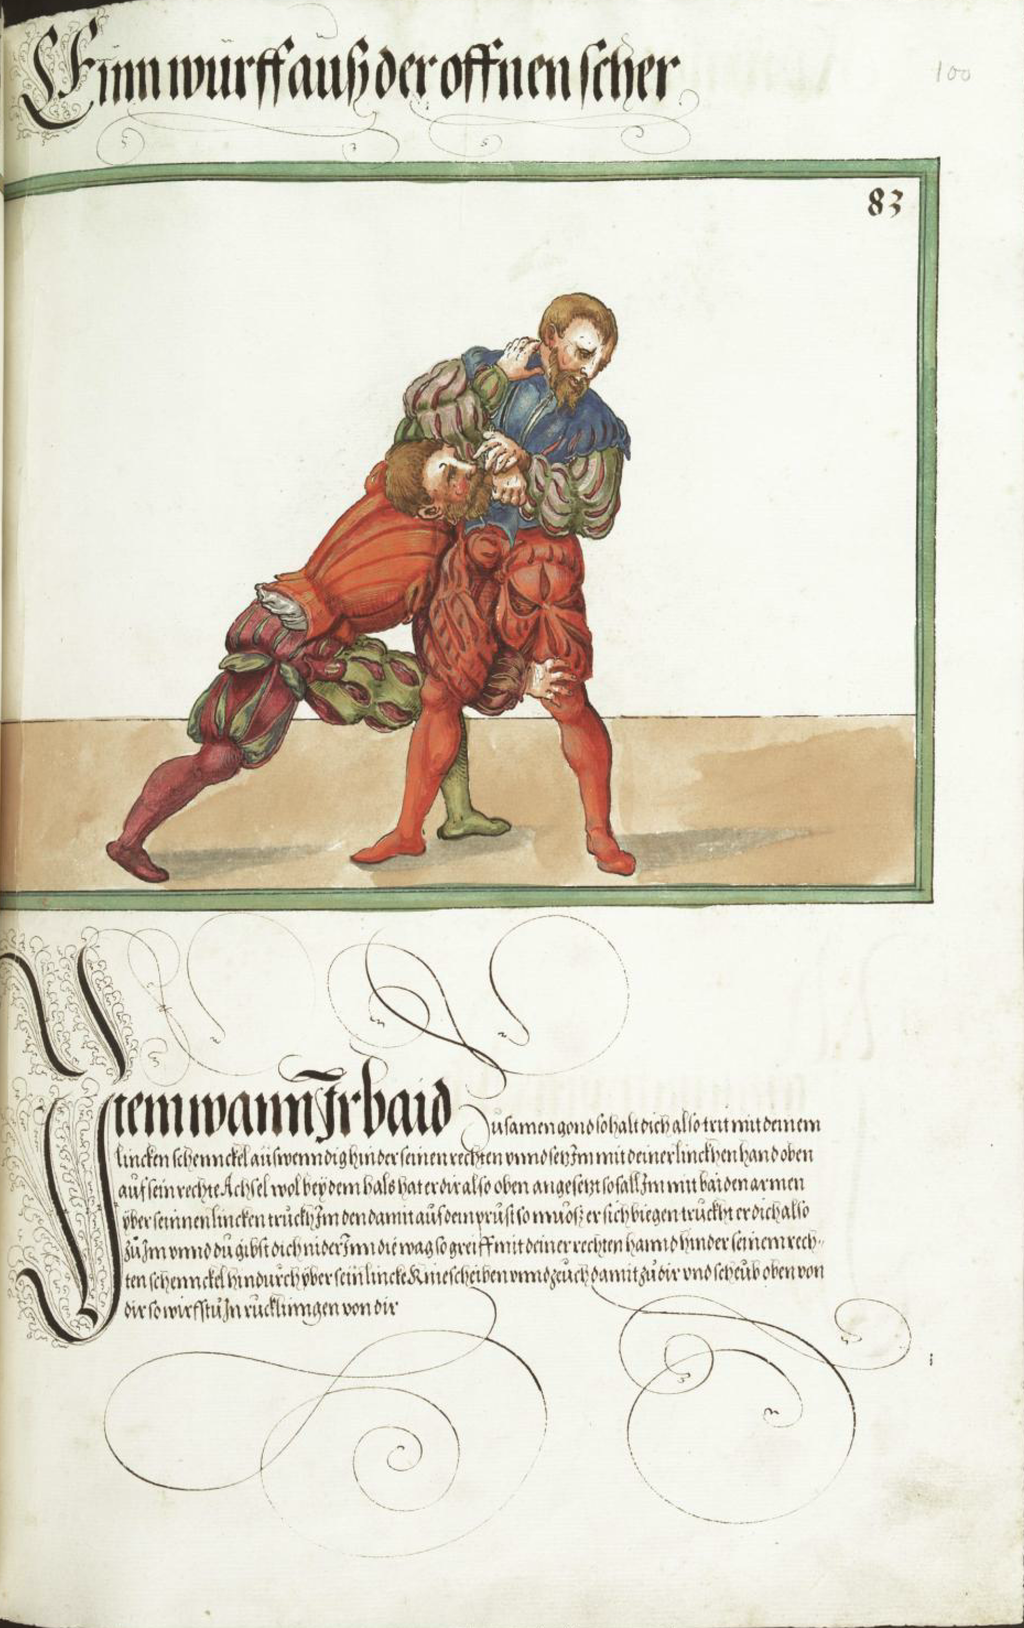 Einn würff auß der offnen scher
100
83
Item wann Ir baid zusamen gond so halt dich also trit mit deinem
lincken schennckel auswenndig hinder seinen rechten vnnd setz Im mit deiner linckhen hand oben
auf sein rechte Achsel wol bey dem hals hat er dir also oben angesetzt so fall Im mit baiden armen
yber seinnen lincken truckh Im den damit auf dein prust so muoß er sich biegen truckht er dich also
zu Im vnnd du gibst dich nider Inn die wag so greiff mit deiner rechten hannd hinder seinem rech-
ten schennckel hindurch yber sein lincke Kniescheiben vnnd zeuch damit zu dir vnd scheub oben von
dir so wirfstu In rucklinngen von dir